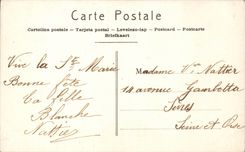 Carte Postale
Cartolina postale — Tarjeta postal — Levelezo-lap — Postcard — Postcarte
Briefkaart
Vive la Ste Marie
Bonne fête
Ta fille
Blanche
Nattier
Madame Vve Nattier
14 avenue Gambetta
Sèvres
Seine et Oise